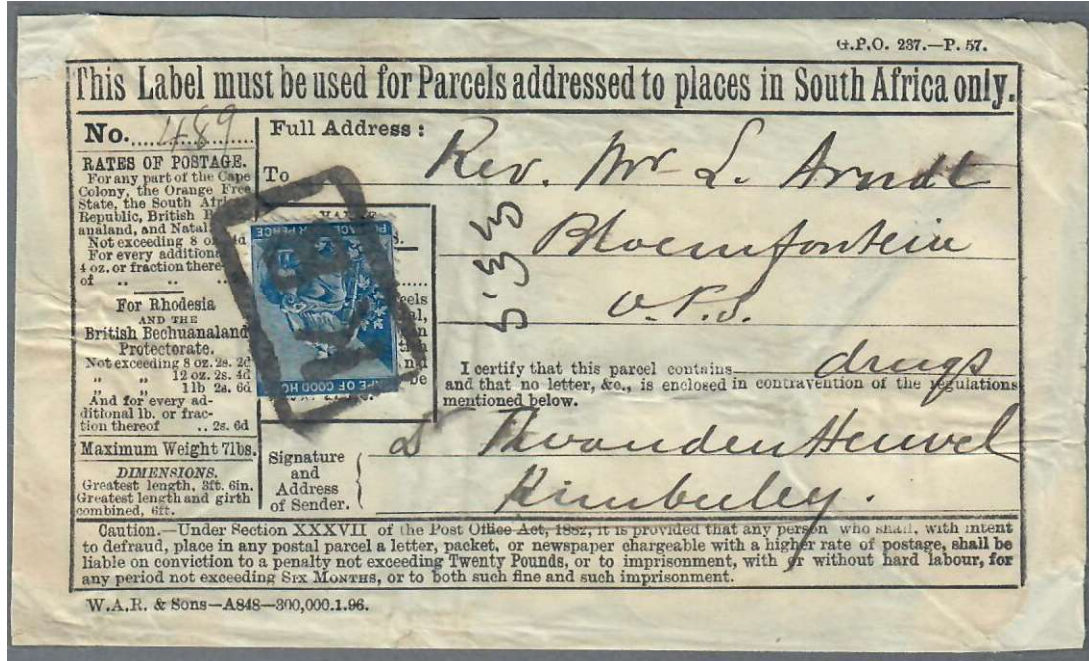 G.P.O. 237.—P. 57.
This Label must be used for Parcels addressed to places in South Africa only.
No. 489
RATES OF POSTAGE.
For any part of the Cape
Colony, the Orange Free
State, the South
Republic, British
analand, and Natal
Not exceeding 8 4d
For every additional
4 oz. or fraction there-
of .. .. ..
For Rhodesia
AND THE
British Bechuanaland
Protectorate.
Not exceeding 8 oz. 2s. 2d
„ „ 12 oz. 2s. 4d
„ „ 1lb 2s. 6d
And for every ad-
ditional lb. or frac-
tion thereof .. 2s. 6d
Maximum Weight 7lbs.
DIMENSIONS.
Greatest length, 3ft. 6in.
Greatest length and girth
combined, 6ft.
Full Address:
To Rev. Mr L. Arndt
Bloemfontein
O.F.S.
5.33
POSTAGE PENCE
OF GOOD
I certify that this parcel contains drugs
and that no letter, &c., is enclosed in contravention of the regulations
mentioned below.
Signature
and
Address
of Sender.
vanden Heuvel
Kimberley.
Caution.—Under Section XXXVII of the Post Office Act, 1882, it is provided that any person who shall, with intent
to defraud, place in any postal parcel a letter, packet, or newspaper chargeable with a higher rate of postage, shall be
liable on conviction to a penalty not exceeding Twenty Pounds, or to imprisonment, with or without hard labour, for
any period not exceeding Six Months, or to both such fine and such imprisonment.
W.A.R. & Sons—A848—300,000.1.96.